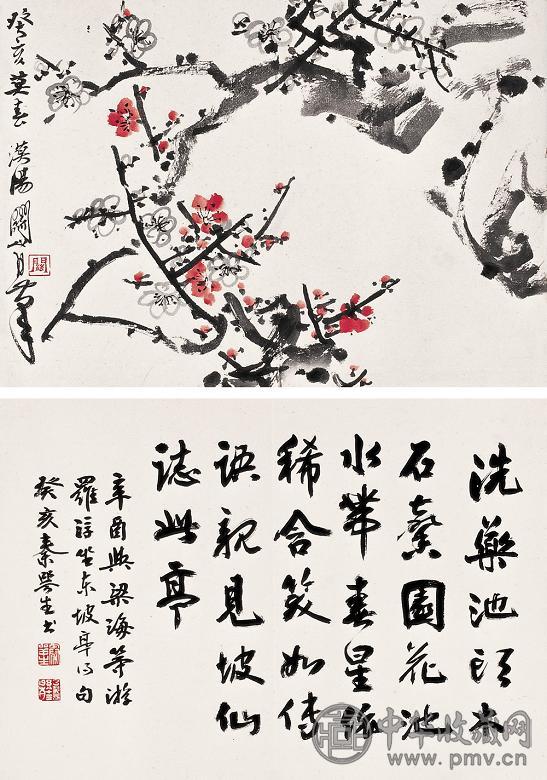 癸亥莫春漢陽關山月筆
關
洗藥池頭木
石馨園花池
水帶春星依
稀含笑如傳
語親見坡仙
誌此亭
辛酉與梁海等游
羅浮坐東坡亭得句
癸亥秦咢生書
中华收藏网
www.pmv.cn